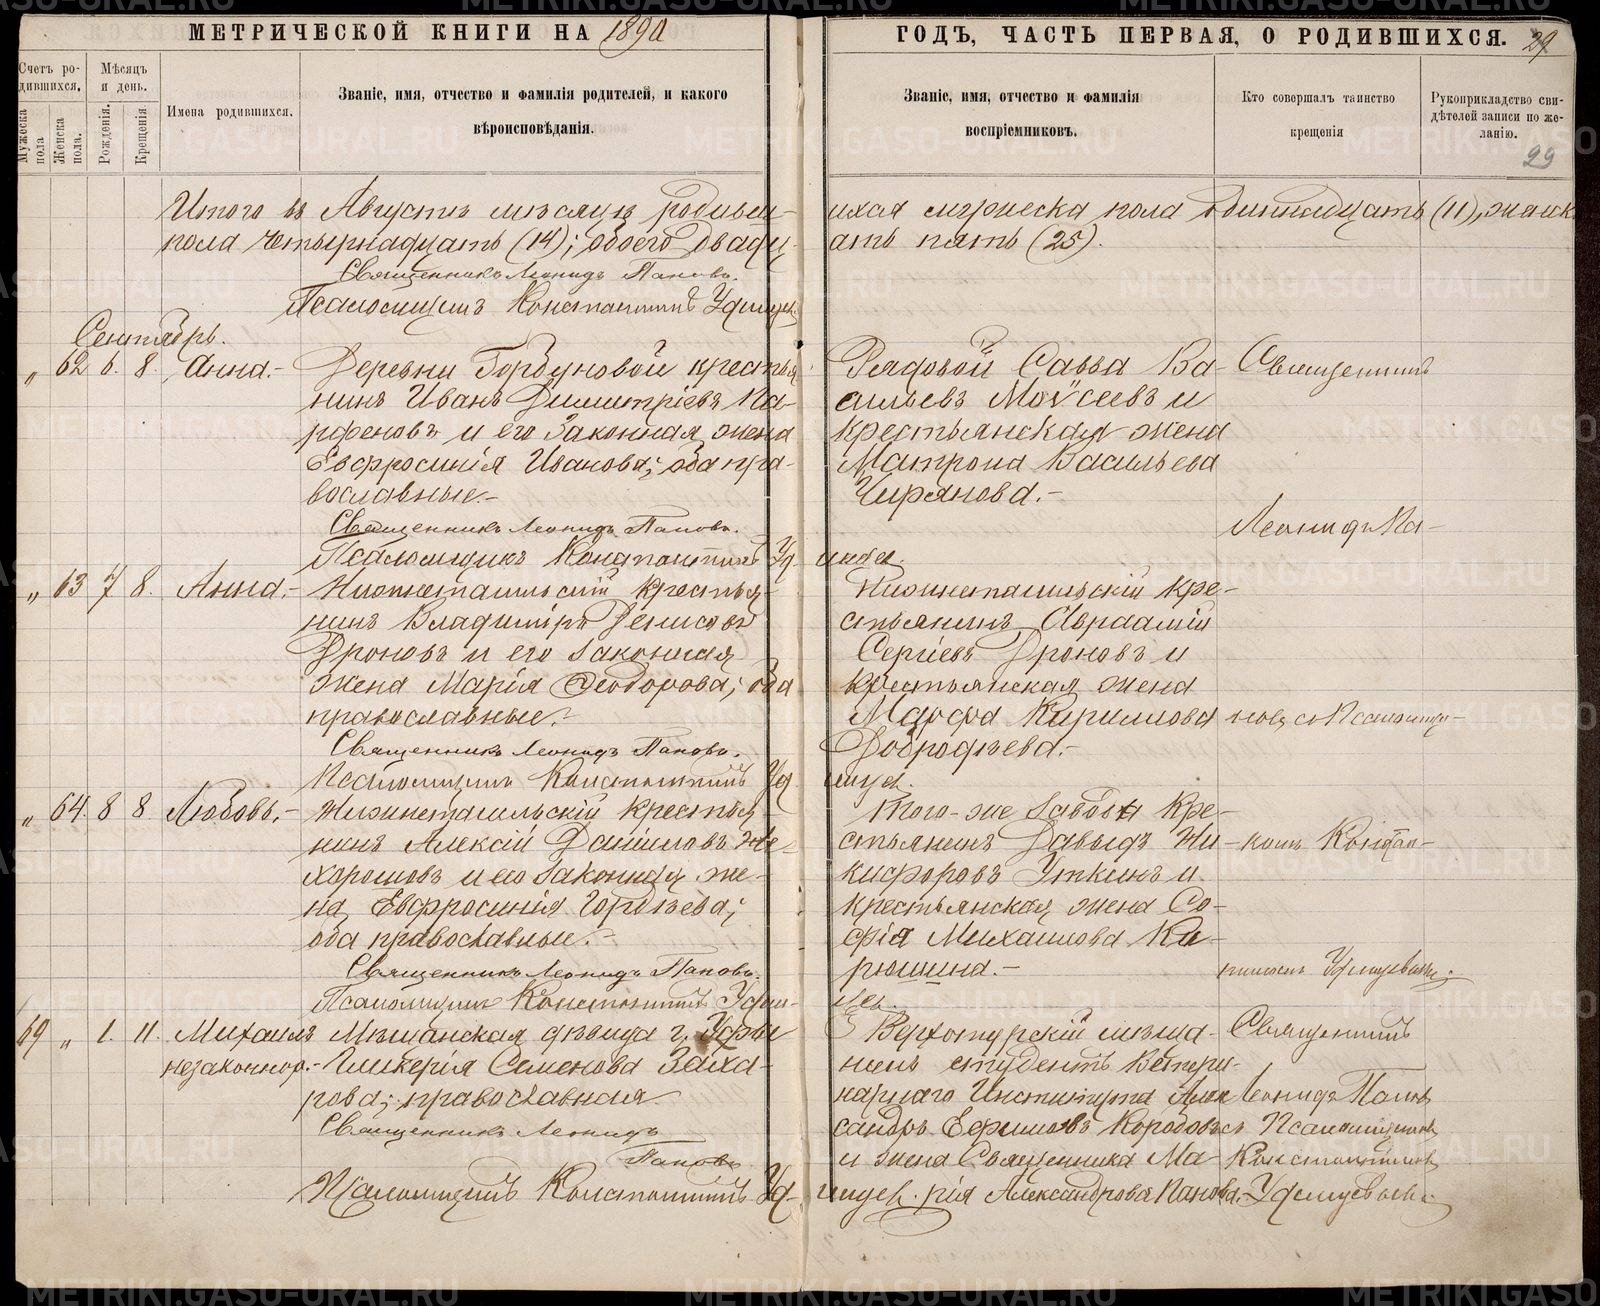 МЕТРИЧЕСКОЙ КНИГИ НА 1890
ГОДЪ, ЧАСТЬ ПЕРВАЯ, О РОДИВШИХСЯ. 29
Счетъ родившихся.
Мужеска пола.
Женска пола.
Мѣсяцъ и день.
Рожденія.
Крещенія
Имена родившихся.
Званіе, имя, отчество и фамилія родителей, и какого
вѣроисповѣданія.
Званіе, имя, отчество и фамилія
воспріемниковъ.
Кто совершалъ таинство
крещенія
Рукоприкладство сви-
дѣтелей записи по же-
ланію.
29
Итого въ Августѣ мѣсяцѣ родивш-
ихся мужеска пола одиннадцать (11), женск
пола четырнадцать (14); обоего двадц
ать пять (25).
Священникъ Леонидъ Поповъ.
Псаломщикъ Константинъ
Сентябрь.
„ 62 6. 8. Анна.-
Деревни Горбуновой кресть
нинъ Иванъ Димитріевъ Па-
рфеновъ и его законная жена
Евфросинія Иванова; оба пра-
вославные.-
Священникъ Леонидъ Поповъ.
Псаломщикъ Константинъ
Рядовой Савва Ва-
сильевъ Моѵсеевъ и
крестьянская жена
Матрона Васильева
Чирянова.-
Священникъ
Леонидъ По-
„ 63 7 8. Анна.-
Нижнетагильскій крестья-
нинъ Владиміръ Денисовъ
Дроновъ и его законная
жена Марія Ѳеодорова; оба
православные.-
Священникъ Леонидъ Поповъ.
Псаломщикъ Константинъ
Нижнетагильскій кре-
стьянинъ Авраамій
Сергіевъ Дроновъ и
крестьянская жена
Марфа Кириллова
Добродѣева.-
повъ съ Псаломщи-
„ 64. 8 8 Любовь.-
Нижнетагильскій крестья-
нинъ Алексій Даніиловъ Не-
хорошовъ и его законная же-
на Евфросинія Гордѣева;
оба православные.-
Священникъ Леонидъ Поповъ.
Псаломщикъ Константинъ
Того-же завода кре-
стьянинъ Давыдъ Ни-
кифоровъ Уткинъ и
крестьянская жена Со-
фія Михаилова Ка-
рюшина.-
комъ Констан-
69 „ 1. 11. Михаилъ
незаконнор.-
Мѣщанская дѣвица г. Уфы
Гликерія Семенова Заха-
рова; православная.
Священникъ Леонидъ
Поповъ
Псаломщикъ Константинъ
Верхотурскій мѣща-
нинъ студентъ Ветери-
нарнаго Института Алек
сандръ Ефимовъ Коробовъ
и жена Священника Ма-
рія Александрова Попова.-
Священникъ
Леонидъ Поповъ
съ Псаломщикомъ
Константиномъ